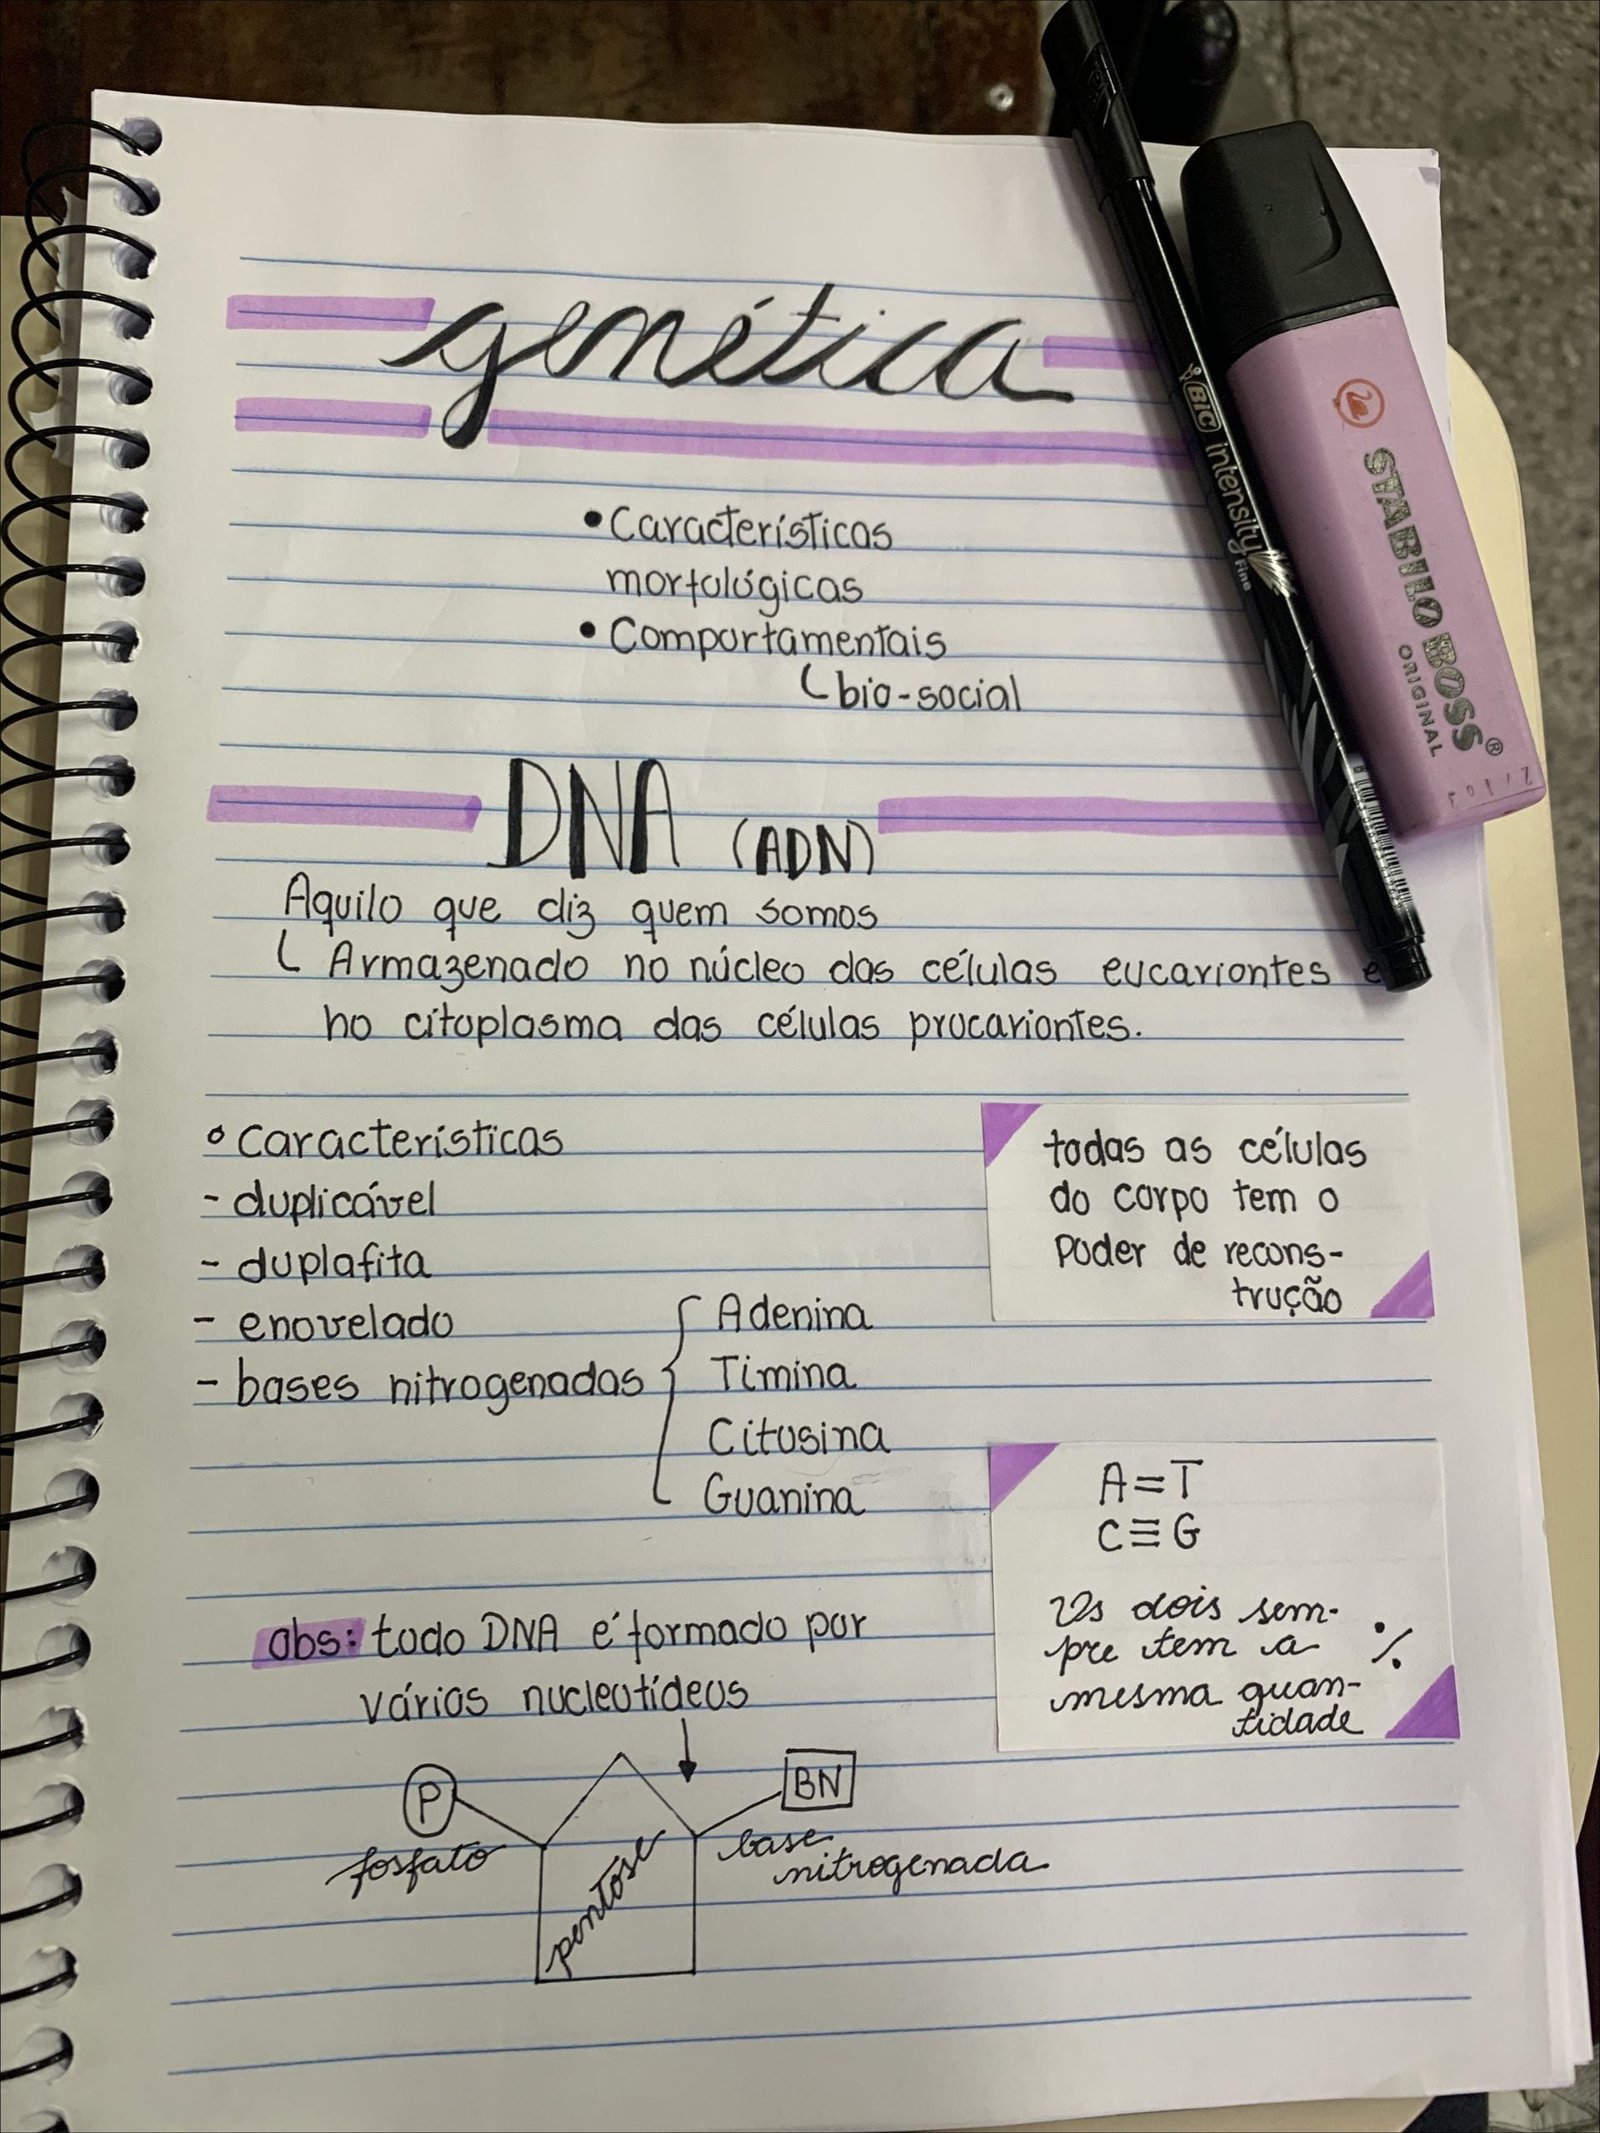 genética
• Características
morfológicas
• Comportamentais
bio-social
DNA (ADN)
Aquilo que diz quem somos
Armazenado no núcleo das células eucariontes e
no citoplasma das células procariontes.
° Características
- duplicável
- duplafita
- enovelado
- bases nitrogenadas
Adenina
Timina
Citosina
Guanina
todas as células
do corpo tem o
poder de recons-
trução
A=T
C≡G
Os dois sem-
pre tem a
mesma quan-
tidade
%
obs: todo DNA é formado por
vários nucleotídeos
P
fosfato
pentose
BN
base
nitrogenada
BIC intensity Fine
STABILO BOSS®
ORIGINAL